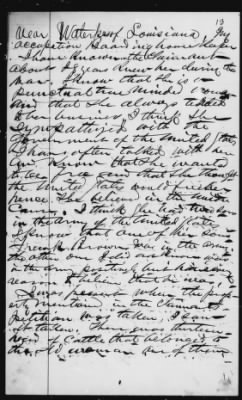 near Waterproof Louisiana My
occupation boarding house Keeper
I have Known the Claimant
about years Knew her during the
war, I know that she is a
punctual true minded woman
and that she always tended
to her business, I think she
sympathized with the
Government of the United States
I have often talked with her
and know that she wanted
to be free and that she thought
the United States would
She believed in the Union
Cause, I think she had two sons
in the army of the United States
I know that one of her sons
Brown was in the army
the other one I did not know was
in the army positively but have every
reason to think that he was
I was present when the property
mentioned in the Claimants
petition was taken, I saw
it taken. There was thirteen
head of Cattle that belonged to
the old woman one of them